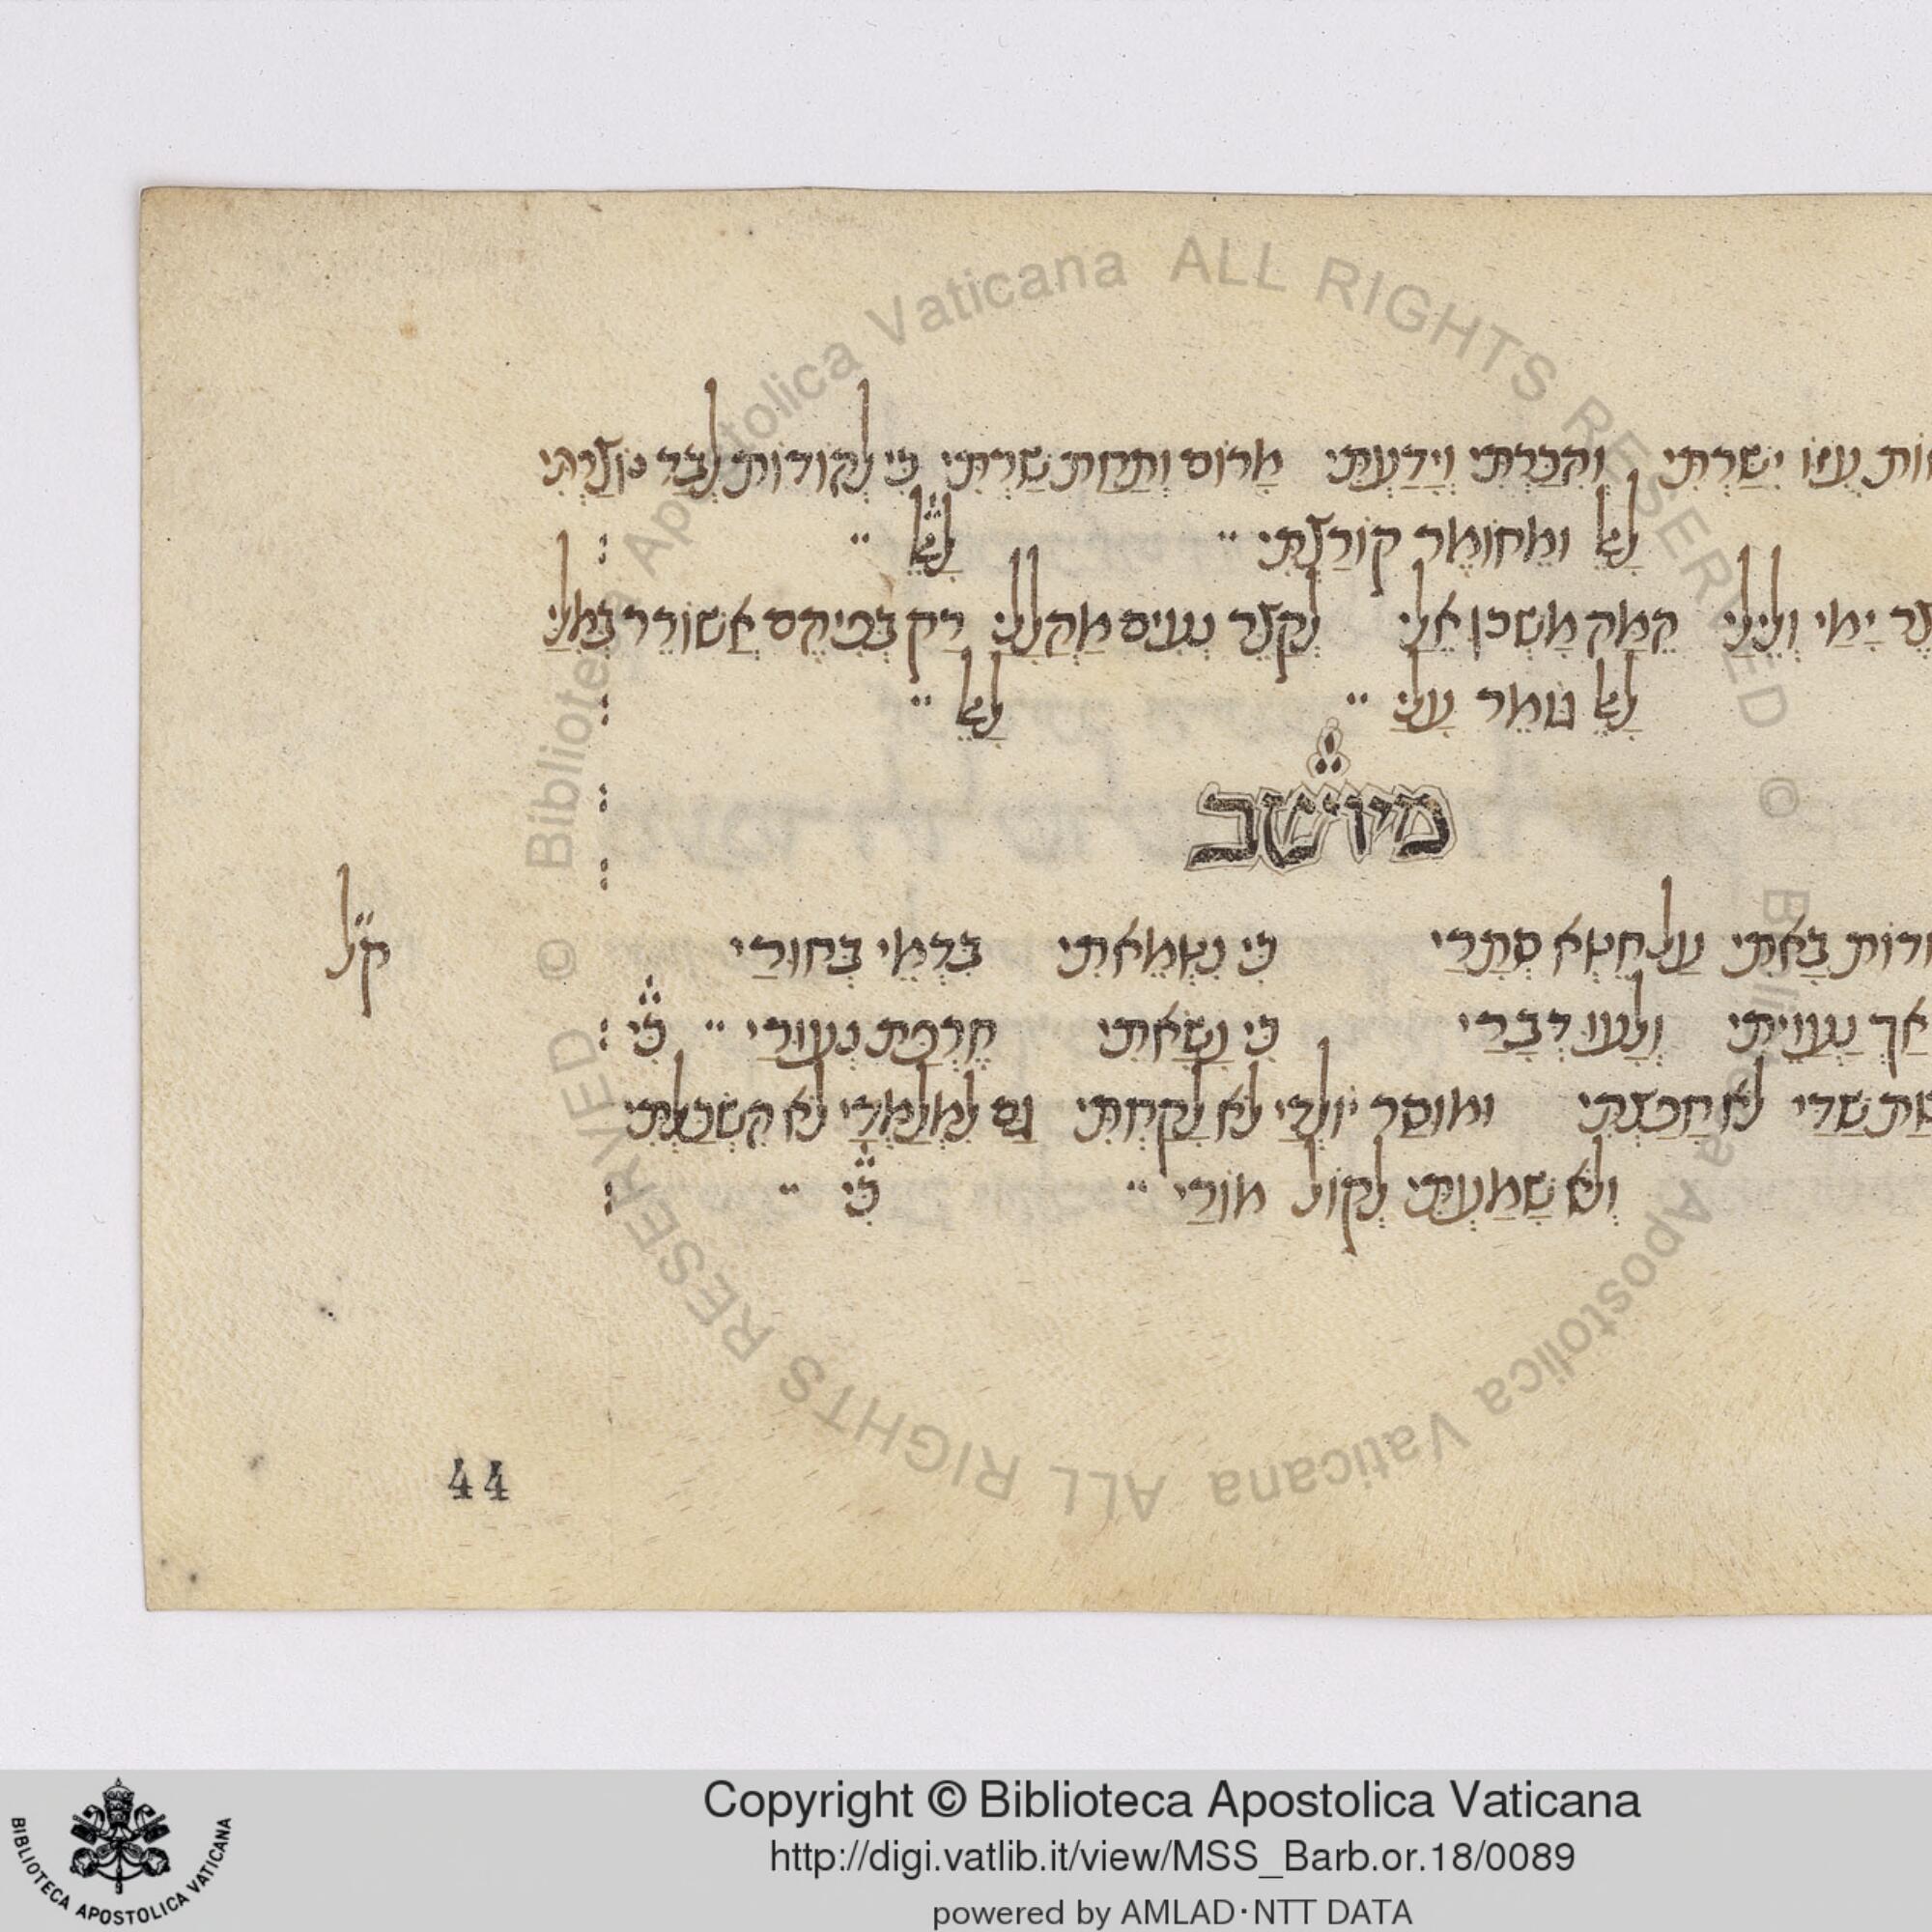 עֻזּוֹ יִשַּׁרְתִּי וְהִכַּרְתִּי וְיָדַעְתִּי מָרוֹם וְתַחַת שֵׁרְתִּי כִּי לְקוֹדוֹת לְבַד
וּמֵחוֹמֶר קוֹרַצְתִּי
יָמַי וְלֵילַי מָשְׁכוּ אֵלַי לְקֵצֶר רַק אֲשׁוֹרֵר
גּוֹמֵר עָלַי
מיושב
בָּאתִי עַל חֵטְא סְתָרַי כִּי נִטְמֵאתִי בִּדְמֵי בְּחוּרַי
אַךְ נַעֲוֵיתִי וְלָעוּ דְבָרַי כִּי נָשָׂאתִי חֶרְפַּת נְעוּרַי כִּי
שַׁדַּי לֹא חָפַצְתִּי וּמוּסַר יוֹלְדַי לֹא לָקַחְתִּי גַּם לִמְלַמְּדַי לֹא הִשְׂכַּלְתִּי
וְלֹא שָׁמַעְתִּי לְקוֹל מוֹרַי כִּי
ק״ל
44
© Biblioteca Apostolica Vaticana ALL RIGHTS RESERVED
© Biblioteca Apostolica Vaticana ALL RIGHTS RESERVED
BIBLIOTECA APOSTOLICA VATICANA
Copyright © Biblioteca Apostolica Vaticana
http://digi.vatlib.it/view/MSS_Barb.or.18/0089
powered by AMLAD·NTT DATA